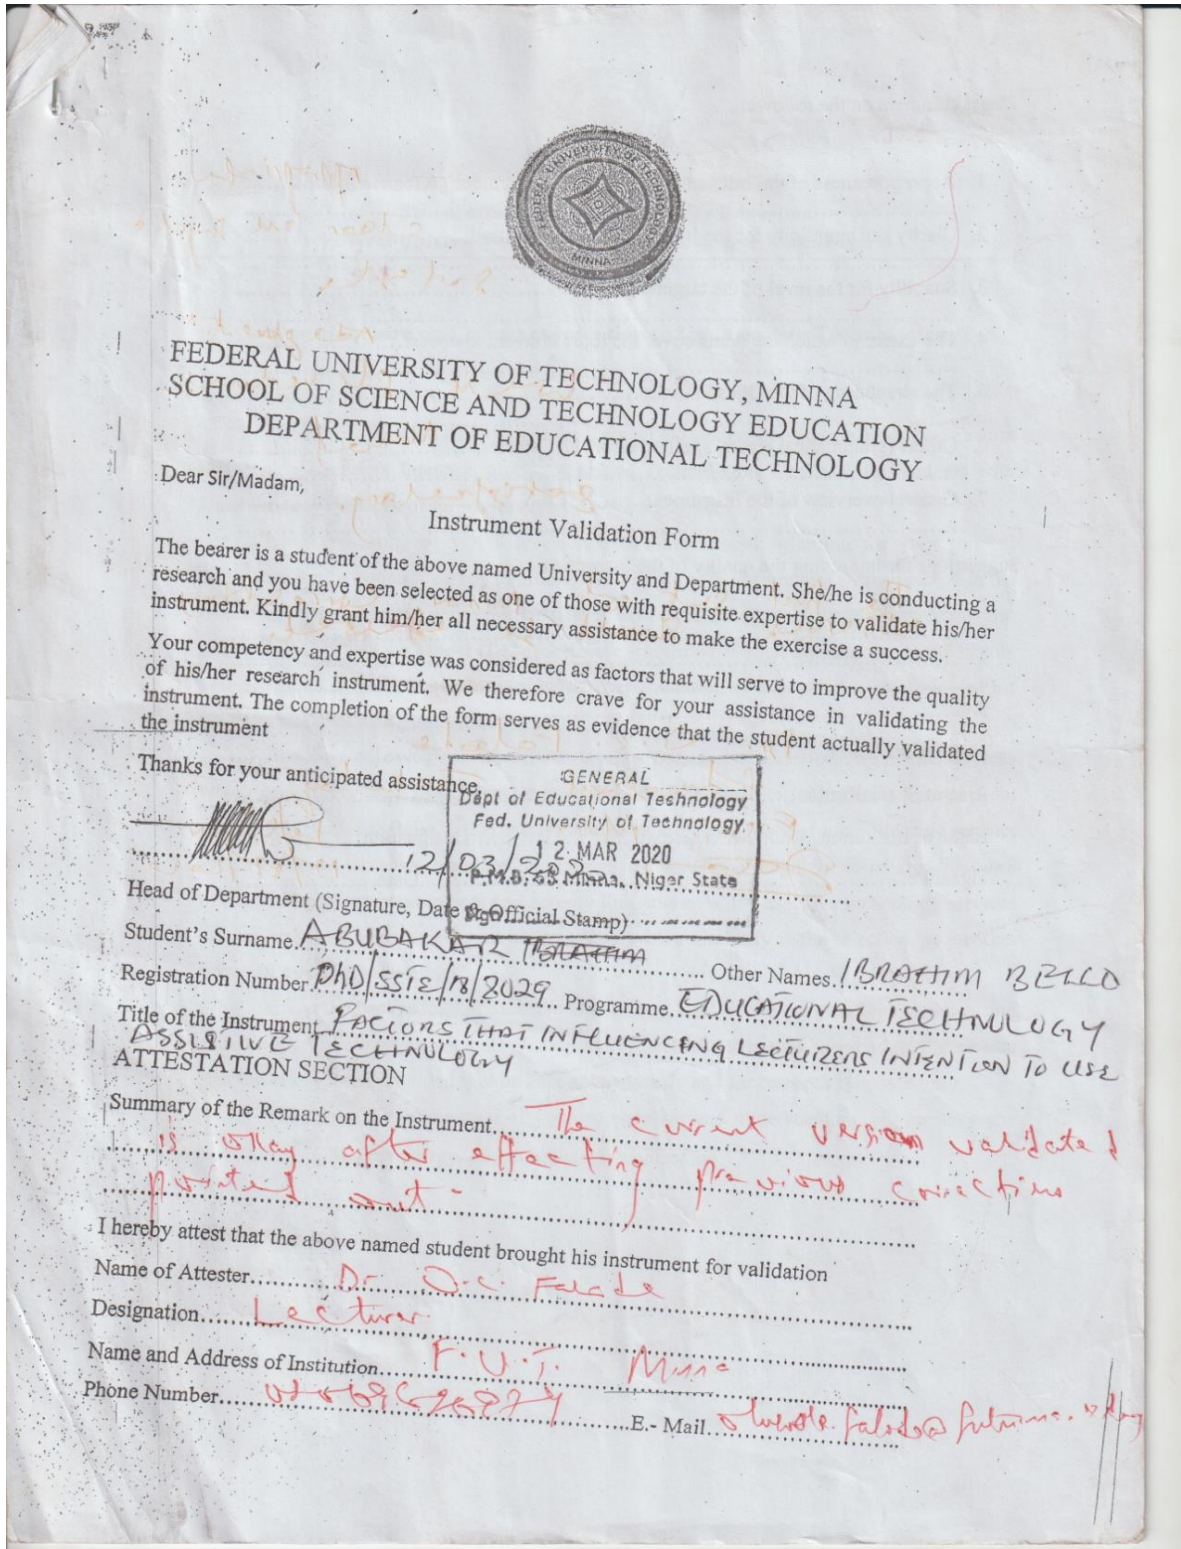 FEDERAL UNIVERSITY OF TECHNOLOGY
MINNA
FEDERAL UNIVERSITY OF TECHNOLOGY, MINNA
SCHOOL OF SCIENCE AND TECHNOLOGY EDUCATION
DEPARTMENT OF EDUCATIONAL TECHNOLOGY
Dear Sir/Madam,
Instrument Validation Form
The bearer is a student of the above named University and Department. She/he is conducting a
research and you have been selected as one of those with requisite expertise to validate his/her
instrument. Kindly grant him/her all necessary assistance to make the exercise a success.
Your competency and expertise was considered as factors that will serve to improve the quality
of his/her research instrument. We therefore crave for your assistance in validating the
instrument. The completion of the form serves as evidence that the student actually validated
the instrument
Thanks for your anticipated assistance
GENERAL
Dept of Educational Technology
Fed. University of Technology
12 MAR 2020
P.M.B. 65 Minna, Niger State
Sign
12/03/
Head of Department (Signature, Date & Official Stamp)
Student's Surname ABUBAKAR IBRAHIM Other Names IBRAHIM BELLO
Registration Number PhD/SSTE/18/2029 Programme EDUCATIONAL TECHNOLOGY
Title of the Instrument FACTORS THAT INFLUENCING LECTURERS INTENTION TO USE
ASSISTIVE TECHNOLOGY
ATTESTATION SECTION
Summary of the Remark on the Instrument The current version validated
is okay after effecting previous corrections
pointed out
I hereby attest that the above named student brought his instrument for validation
Name of Attester Dr. O.C. Falade
Designation Lecturer
Name and Address of Institution F.U.T. Minna
Phone Number
E.- Mail